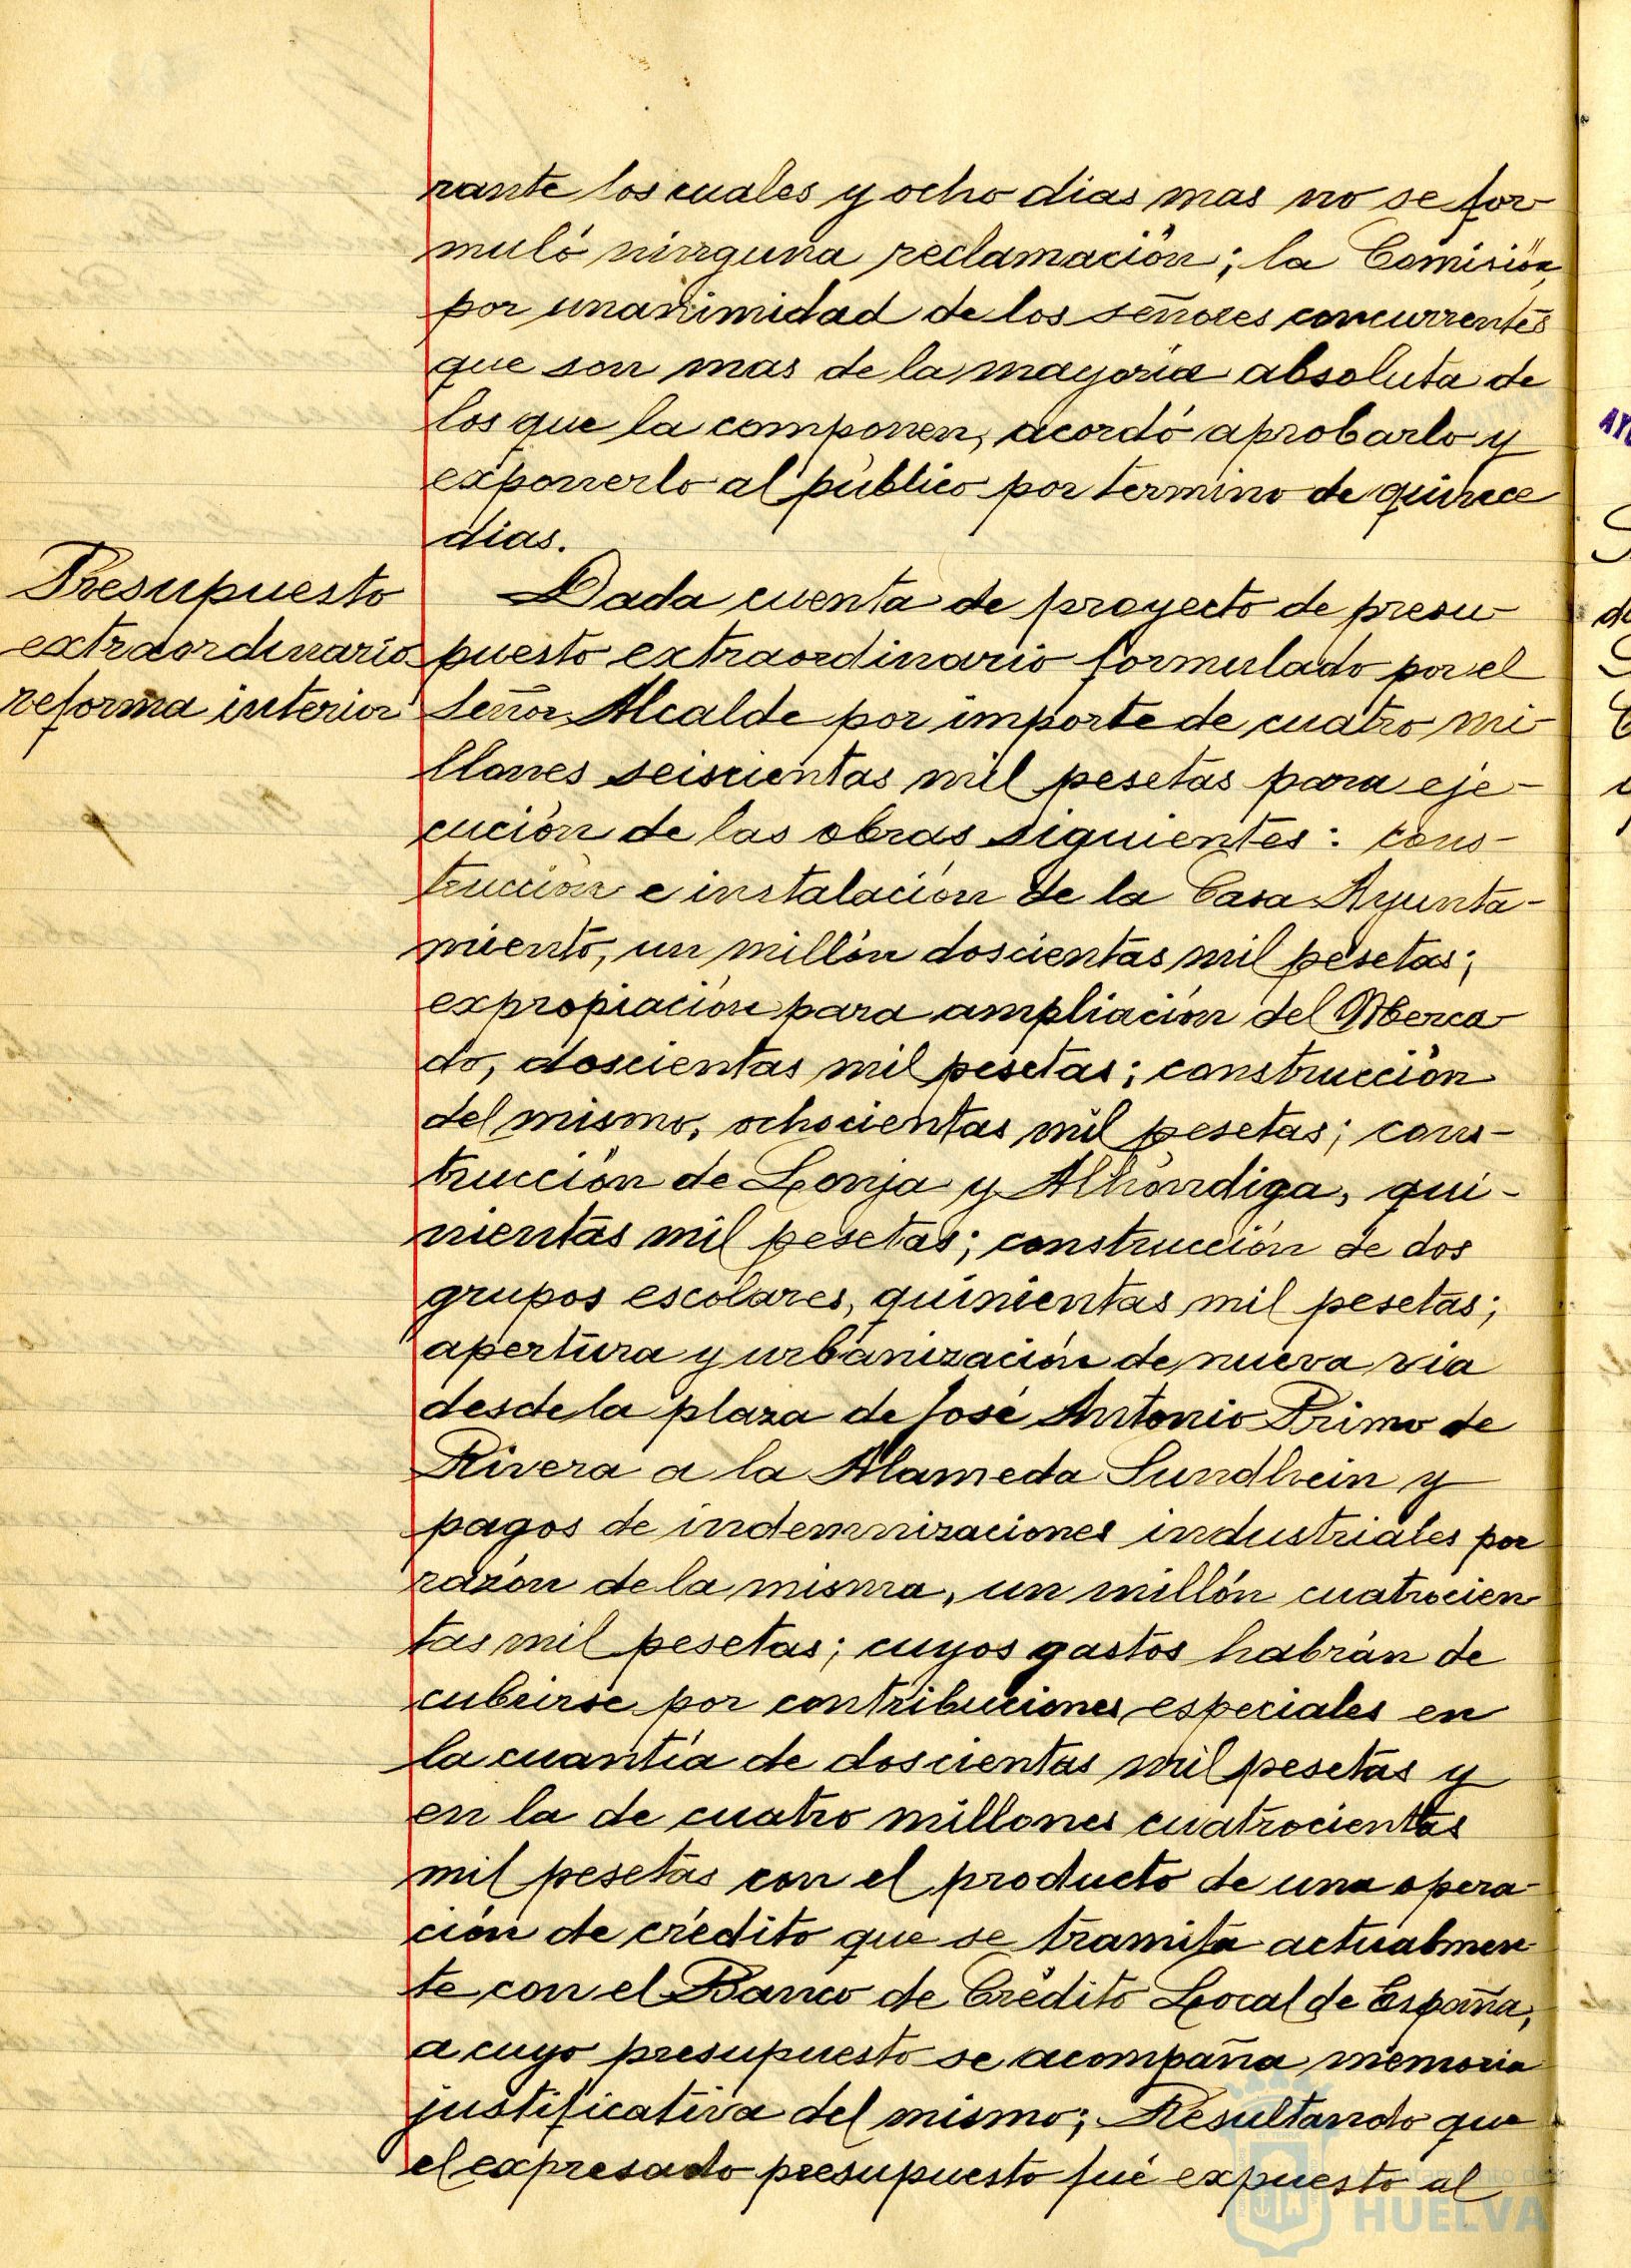 rante los cuales y ocho dias mas no se for
muló ninguna reclamación; la Comisión,
por unanimidad de los señores concurrentes
que son mas de la mayoria absoluta de
los que la componen, acordó aprobarlo y
exponerlo al público por termino de quince
dias.
Presupuesto
extraordinario
reforma interior
Dada cuenta de proyecto de presu-
puesto extraordinario formulado por el
Señor Alcalde por importe de cuatro mi-
llones seiscientas mil pesetas para eje-
cución de las obras siguientes: cons-
trucción e instalación de la Casa Ayunta-
miento, un millón doscientas mil pesetas;
expropiación para ampliación del Merca-
do, doscientas mil pesetas; construcción
del mismo, ochocientas mil pesetas; cons-
trucción de Lonja y Alhóndiga, qui-
nientas mil pesetas; construcción de dos
grupos escolares, quinientas mil pesetas;
apertura y urbanización de nueva via
desde la plaza de José Antonio Primo de
Rivera a la Alameda Sundhein y
pagos de indemnizaciones industriales por
razón de la misma, un millón cuatrocien
tas mil pesetas; cuyos gastos habrán de
cubrirse por contribuciones especiales en
la cuantía de doscientas mil pesetas y
en la de cuatro millones cuatrocientas
mil pesetas con el producto de una opera-
ción de crédito que se tramita actualmen
te con el Banco de Crédito Local de España,
a cuyo presupuesto se acompaña memoria
justificativa del mismo; Resultando que
el expresado presupuesto fué expuesto al
Ayuntamiento de
HUELVA